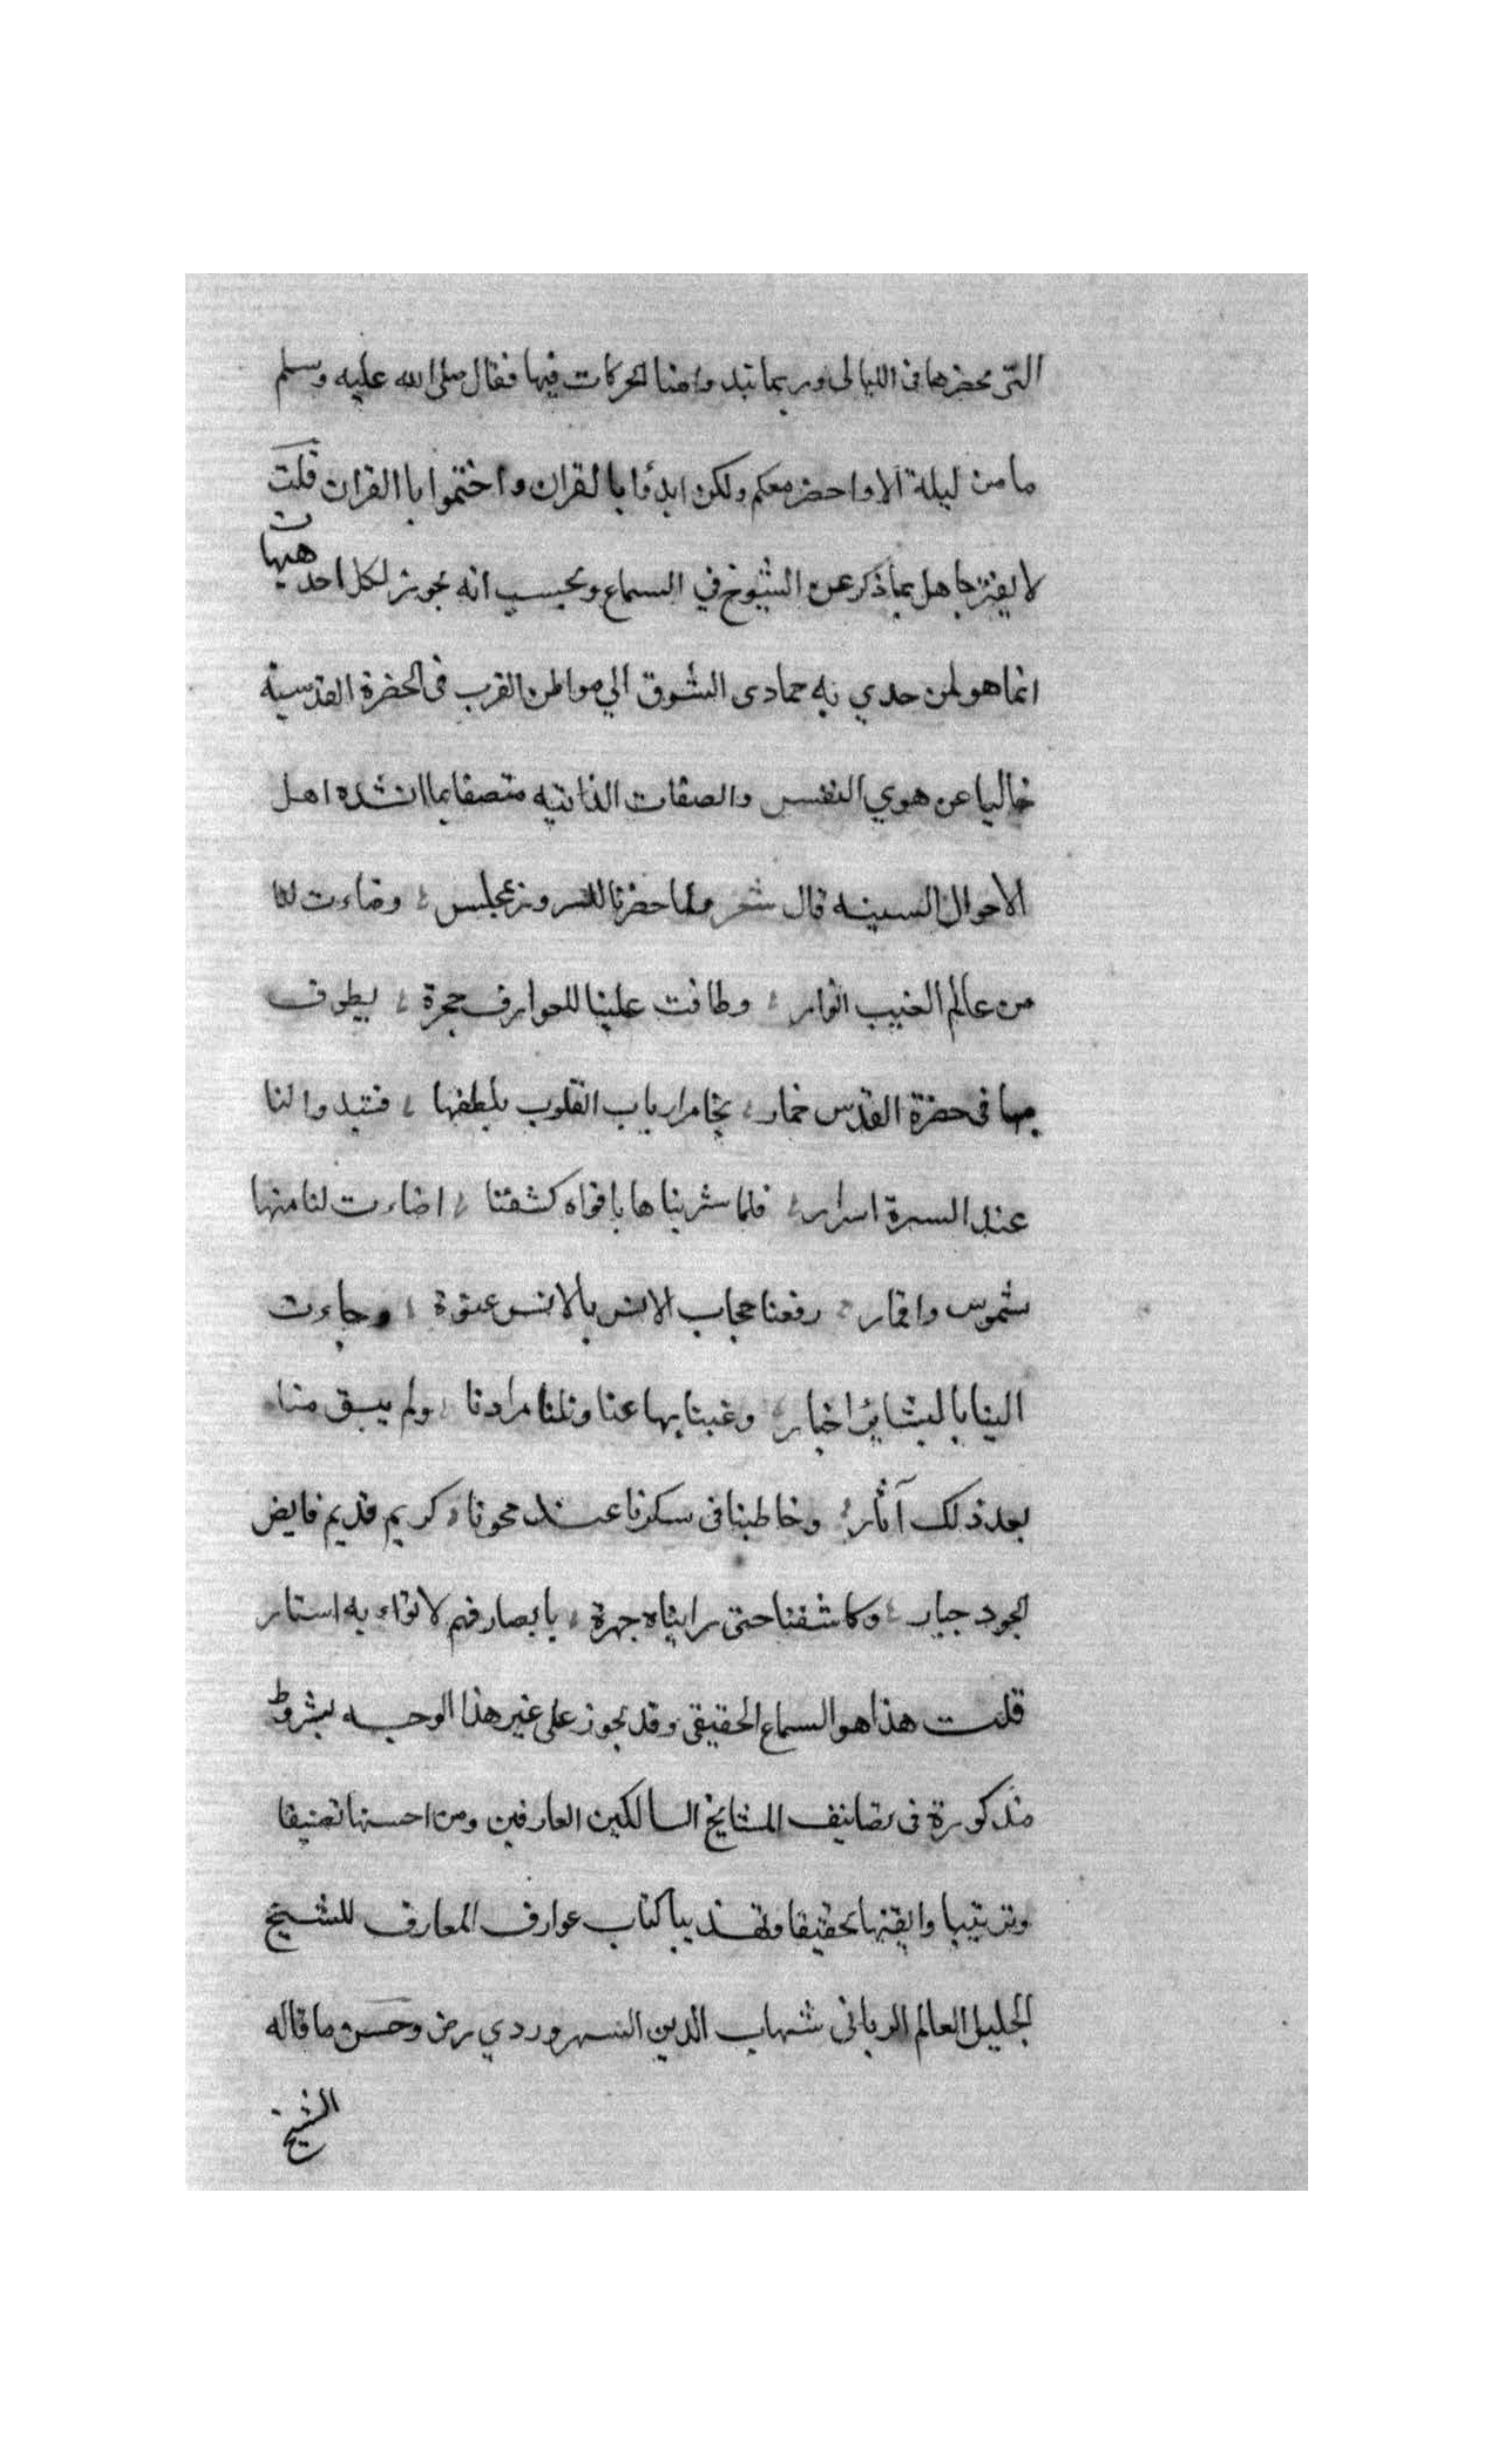 التى نحضرها فى الليالى وربما تبدوا منا الحركات فيها فقال صلى الله عليه وسلم
ما من ليلة الا واحضر معكم ولكن ابدؤا بالقران واختموا باالقران قلت
لا يغتر جاهل بما ذكر عن الشيوخ في السماع ويحسب انه يجوز لكل احد هيهات
انما هو لمن حدي به حادى الشوق الي مواطن القرب فى الحضرة القدسية
خاليا عن هوي النفس والصفات الذاتيه متصفا بما انشده اهل
الاحوال السنيه قال شعر ولما حضرنا للسرور بمجلس وضاءت لنا
من عالم الغيب انوار وطافت علينا للعوارف خمرة يطوف
بها فى حضرة القدس خمار يخامر ارباب القلوب بلطفها فتبدوا لنا
عند المسرة اسرار فلما شربناها بافواه كشفنا اضاءت لنا منها
شموس واقمار رفعنا حجاب الانس بالانس عنوة وجاءت
الينا بالبشائر اخبار وغبنا بها عنا ونلنا مرادنا ولم يبق منا
بعد ذلك آثار وخاطبنا فى سكرنا عند محونا كريم قديم فايض
الجود جبار وكاشفنا حتى رايناه جهرة بابصار فهم لا تواريه استار
قلت هذا هو السماع الحقيقى وقد يجوز على غير هذا الوجه بشروط
مذكورة فى تصانيف المشايخ السالكين العارفين ومن احسنها تصنيفا
وترتيبا واتقنها تحقيقا وتهذيبا كتاب عوارف المعارف للشيخ
الجليل العالم الربانى شهاب الدين السهروردي رض وحسن ما قاله
الشيخ